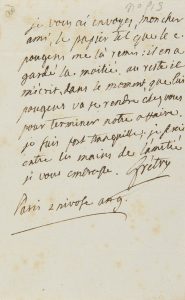 je vous ai envoyez, mon cher
ami, le papier tel que le c.
pougens me l'a remis; il en a
gardé la moitié, au reste il
m'écrit, dans le moment que
pougens va se rendre chez vous
pour terminer notre affaire.
je suis fort tranquille; je suis
entre les mains de l'amitié
je vous embrasse. Grétry
Paris 2 nivose an 9